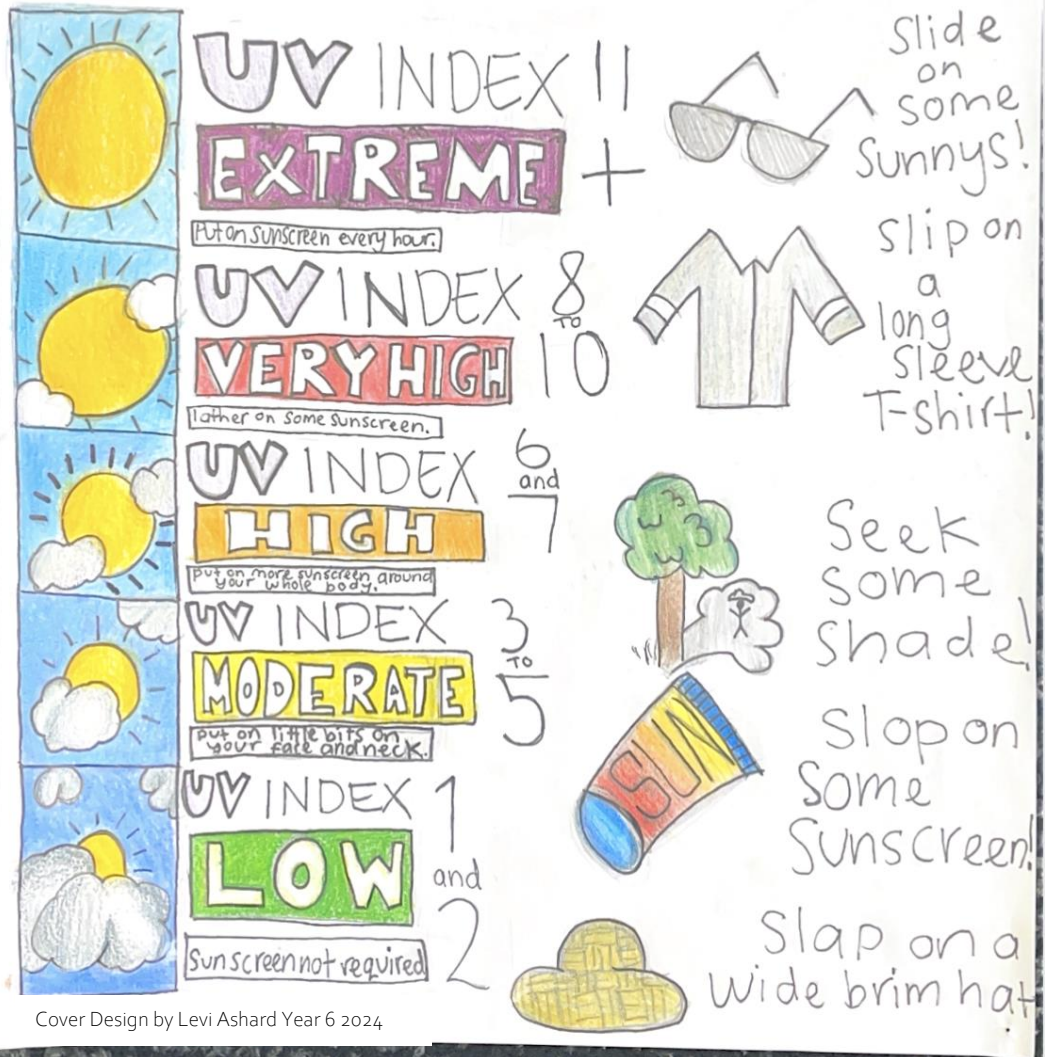 UV INDEX 11
EXTREME +
Put on sunscreen every hour.
UV INDEX 8
TO
VERY HIGH 10
lather on some sunscreen.
UV INDEX 6
and
HIGH 7
put on more sunscreen around
your whole body.
UV INDEX 3
TO
MODERATE 5
put on little bits on
your face and neck.
UV INDEX 1
LOW and
2
Sunscreen not required
Slide
on
some
Sunnys!
Slip on
a
long
sleeve
T-shirt!
Seek
Some
Shade!
SUN
Slop on
Some
Sunscreen!
Slap on a
Wide brim hat
Cover Design by Levi Ashard Year 6 2024